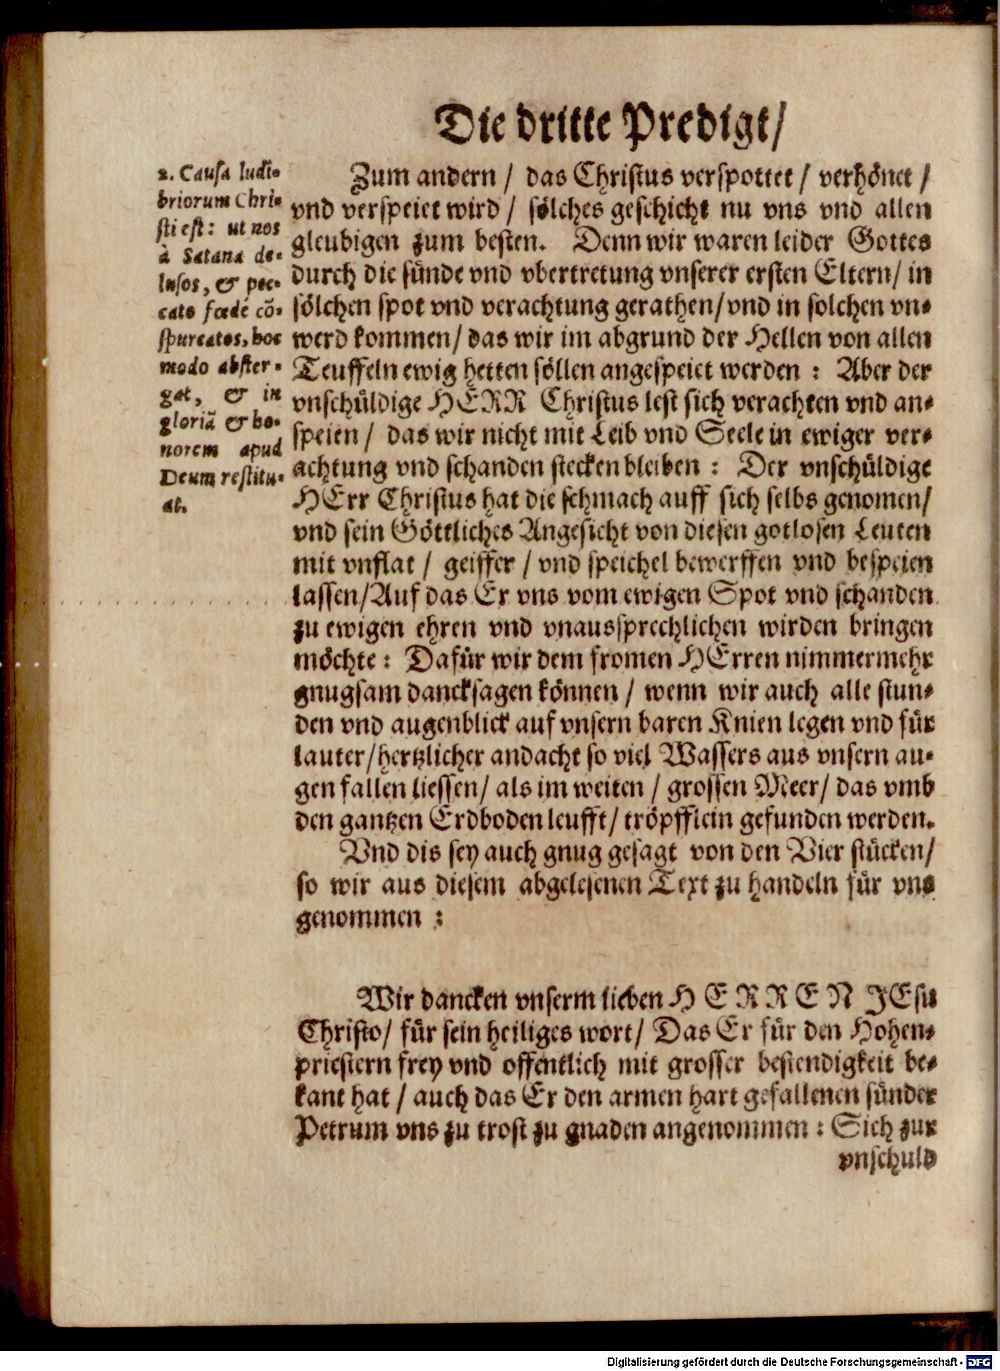 Die dritte Predigt/
2. Causa ludi-
briorum Chri-
sti est: ut nos
à Satana de-
lusos, & pec-
cato fœdè cō-
spurcatos, hoc
modo abster-
gat, & in
gloriā & ho-
norem apud
Deum restitu-
at.
Zum andern / das Christus verspottet / verhönet /
vnd verspeiet wird / sölches geschicht nu vns vnd allen
gleubigen zum besten. Denn wir waren leider Gottes
durch die sünde vnd vbertretung vnserer ersten Eltern/ in
sölchen spot vnd verachtung gerathen/vnd in solchen vn-
werd kommen/ das wir im abgrund der Hellen von allen
Teuffeln ewig hetten söllen angespeiet werden : Aber der
vnschüldige HERR Christus lest sich verachten vnd an-
speien / das wir nicht mit Leib vnd Seele in ewiger ver-
achtung vnd schanden stecken bleiben : Der vnschüldige
HErr Christus hat die schmach auff sich selbs genomen/
vnd sein Göttliches Angesicht von diesen gotlosen Leuten
mit vnflat / geiffer / vnd speichel bewerffen vnd bespeien
lassen/Auf das Er vns vom ewigen Spot vnd schanden
zu ewigen ehren vnd vnaussprechlichen wirden bringen
möchte : Dafür wir dem fromen HErren nimmermehr
gnugsam dancksagen können / wenn wir auch alle stun-
den vnd augenblick auf vnsern baren Knien legen vnd für
lauter/hertzlicher andacht so viel Wassers aus vnsern au-
gen fallen liessen/ als im weiten / grossen Meer/ das vmb
den gantzen Erdboden leufft/ tröpfflein gefunden werden.
Vnd dis sey auch gnug gesagt von den Vier stücken/
so wir aus diesem abgelesenen Text zu handeln für vns
genommen :
Wir dancken vnserm lieben HERREN JEsu
Christo/ für sein heiliges wort/ Das Er für den Hohen-
priestern frey vnd offentlich mit grosser bestendigkeit be-
kant hat / auch das Er den armen hart gefallenen sünder
Petrum vns zu trost zu gnaden angenommen : Sich zur
vnschuld
Digitalisierung gefördert durch die Deutsche Forschungsgemeinschaft - DFG